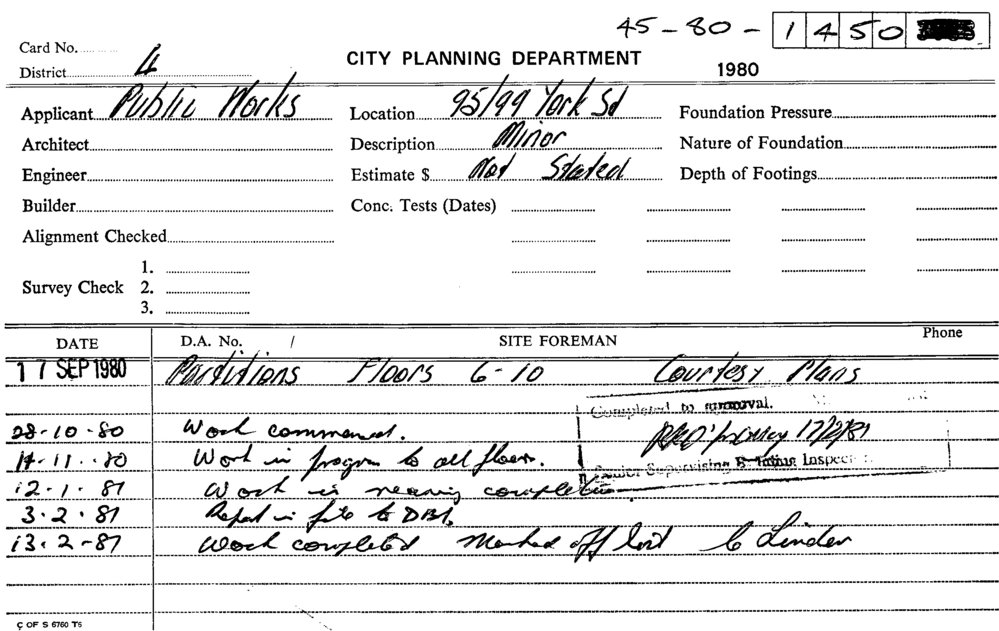 45-80- 1450
Card No.
District 4
CITY PLANNING DEPARTMENT
1980
Applicant Public Works
Location 95/99 York St
Foundation Pressure
Architect
Description Minor
Nature of Foundation
Engineer
Estimate $ Not Stated
Depth of Footings
Builder
Conc. Tests (Dates)
Alignment Checked
Survey Check
1.
2.
3.
DATE
D.A. No. /
SITE FOREMAN
Phone
17 SEP 1980
Partitions Floors 6-10 Courtesy Plans
Completed to approval.
28-10-80 Work commenced.
17/2/81
14-11-80 Work in progress to all floors.
Senior Supervising Building Inspector
12-1-81 Work is nearing completion.
3-2-81 Report in file to DBI.
13-2-81 Work completed Marked off list C Linden
C OF S 6760 T6